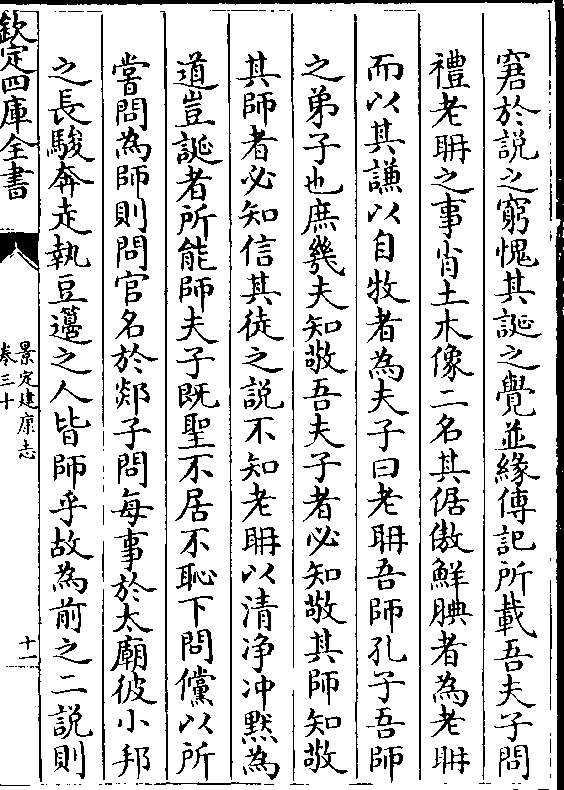 窘於說之窮愧其誕之覺並緣傳記所載吾夫子問
禮老聃之事肖土木像二名其倨傲鮮腆者為老聃
而以其謙以自牧者為夫子曰老聃吾師孔子吾師
之弟子也庶幾夫知敬吾夫子者必知敬其師知敬
其師者必知信其徒之說不知老聃以清净冲黙為
道豈誕者所能師夫子既聖不居不恥下問儻以所
嘗問為師則問官名於郯子問每事於太廟彼小邦
之長駿奔走執豆籩之人皆師乎故為前之二說則
欽定四庫全書
景定建康志
卷三十
十一